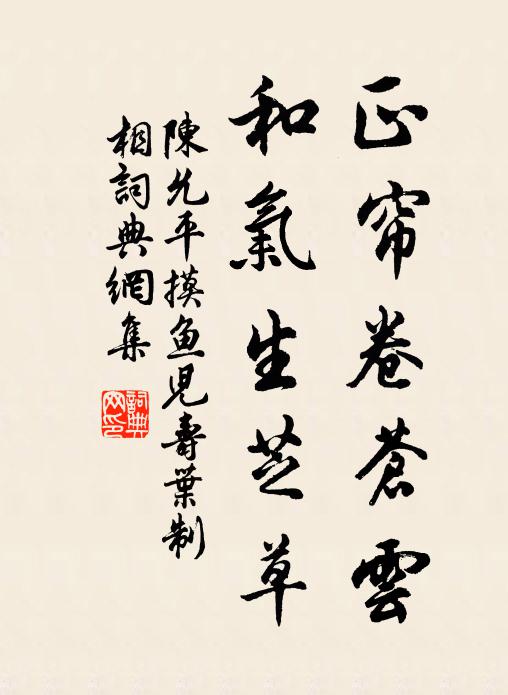 正帘卷蒼雲
和氣生芝草
陳允平摸魚児壽葉制
相詞典網集
詞典網印